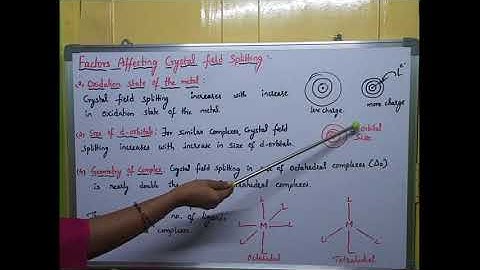 Factors Affecting Crystal field Splitting :-
Oxidation state of the metal :
Crystal field splitting increases with increase
in oxidation state of the metal.
less charge
more charge
Size of d-orbitals : For similar complexes, Crystal field
splitting increases with increase in size of d-orbitals.
orbital
size
Geometry of Complex : Crystal field splitting in case of octahedral complexes (Δo)
is nearly double the tetrahedral complexes.
no. of ligands
complexes.
L
L
L
M
L
L
L
Octahedral
L
M
L
L
L
Tetrahedral